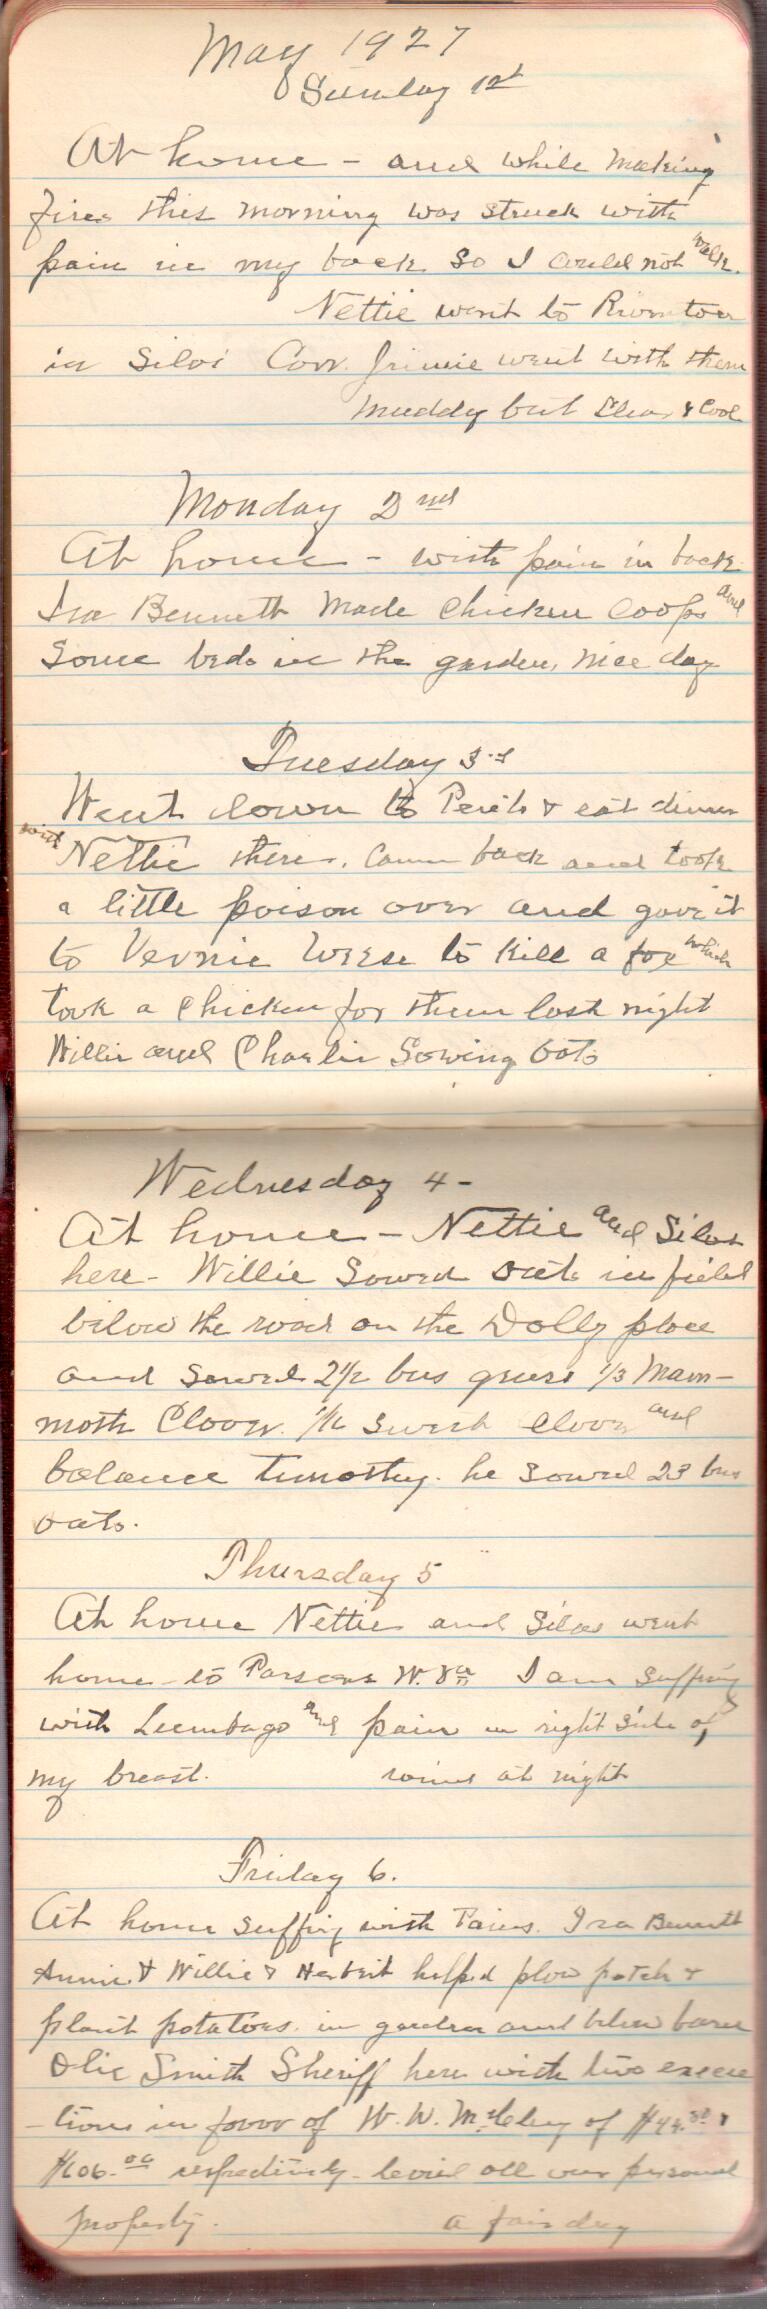 May 1927
Sunday 1st
At home - and while making
fires this morning was struck with
pain in my back so I could not walk.
Nettie went to Riverton
in Silas' Car. Jimmie went with them
Muddy but Clear & Cool
Monday 2nd
At home - with pain in back
Ira Bennett Made Chicken Coops and
Some beds in the garden, nice day
Tuesday 3rd
Went down to & eat dinner
with Nettie there. Came back and took
a little poison over and gave it
to Vernie Weese to Kill a fox which
took a Chicken for them last night
Willie and Charlie Sowing oats
Wednesday 4 -
At home - Nettie and Silas
here - Willie Sowed oats in field
below the road on the Dolly place
and Sowed 2 1/2 bus grass 1/3 Mam-
moth Clover. sweet Clover and
balance timothy. he Sowed 23 bus
oats.
Thursday 5
At home Nettie and Silas went
home - to Parsons W. Va I am Suffring
with Lumbago and pain in right side of
my breast. at night
Friday 6.
At home suffrig with Pains. Ira Bennett
Annie & Willie & Herbert helped plow patch &
plant potatoes in garden and below barn
Olie Smith Sheriff here with two execu
-tions in favor of W. W. of &
$606.00 respectively - levied all our personal
property. a fair day